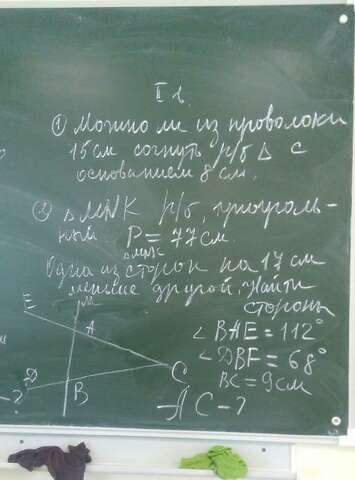 II в.
① Можно ли из проволоки
15 см согнуть р/б Δ с
основанием 8 см.
② Δ MNK р/б, треуголь-
ный P = 77 см.
Δ MNK
Одна из сторон на 17 см
меньше другой. Найти
стороны
E
A
D
B
C
∠ BAE = 112°
∠ DBF = 68°
BC = 9 см
AC - ?
- ?